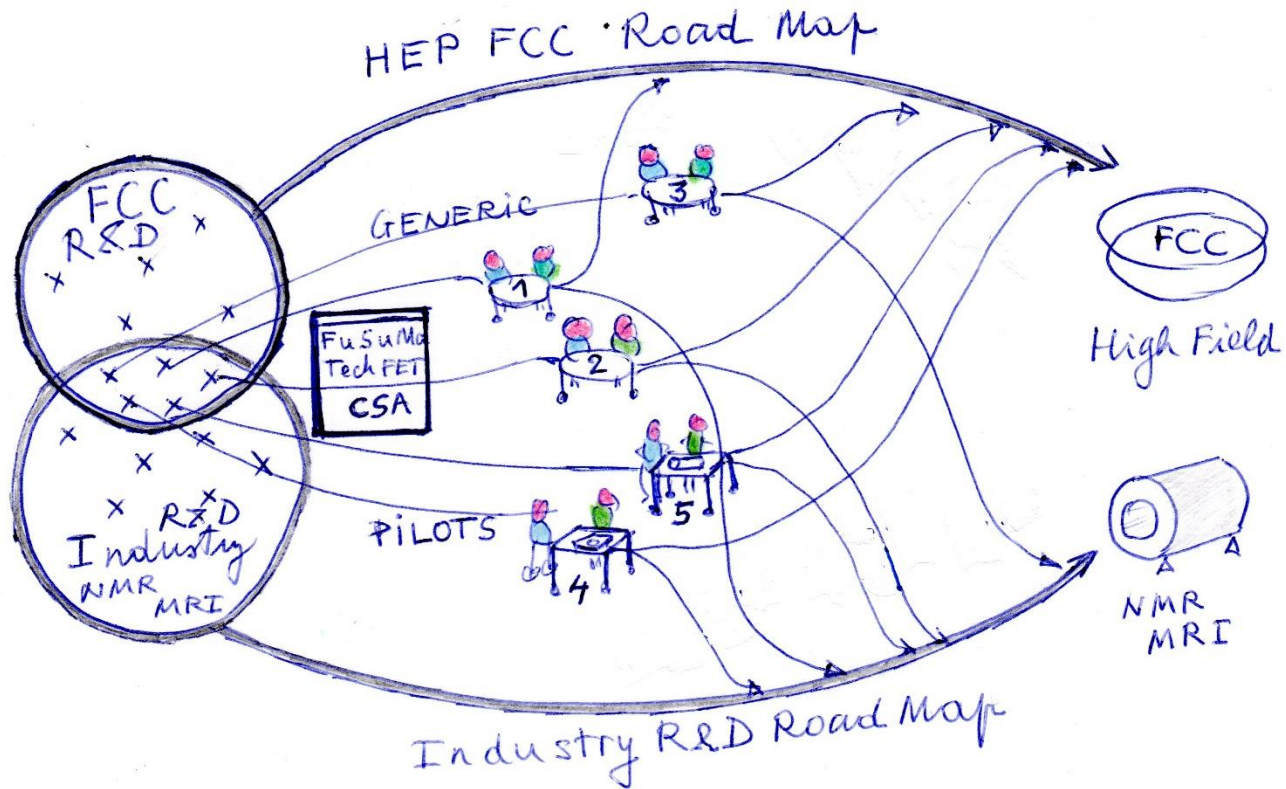 HEP FCC Road Map
FCC
R&D
GENERIC
3
1
FuSuMa
TechFET
CSA
2
FCC
High Field
5
PiLOTS
4
R&D
Industry
NMR
MRI
NMR
MRI
Industry R&D Road Map